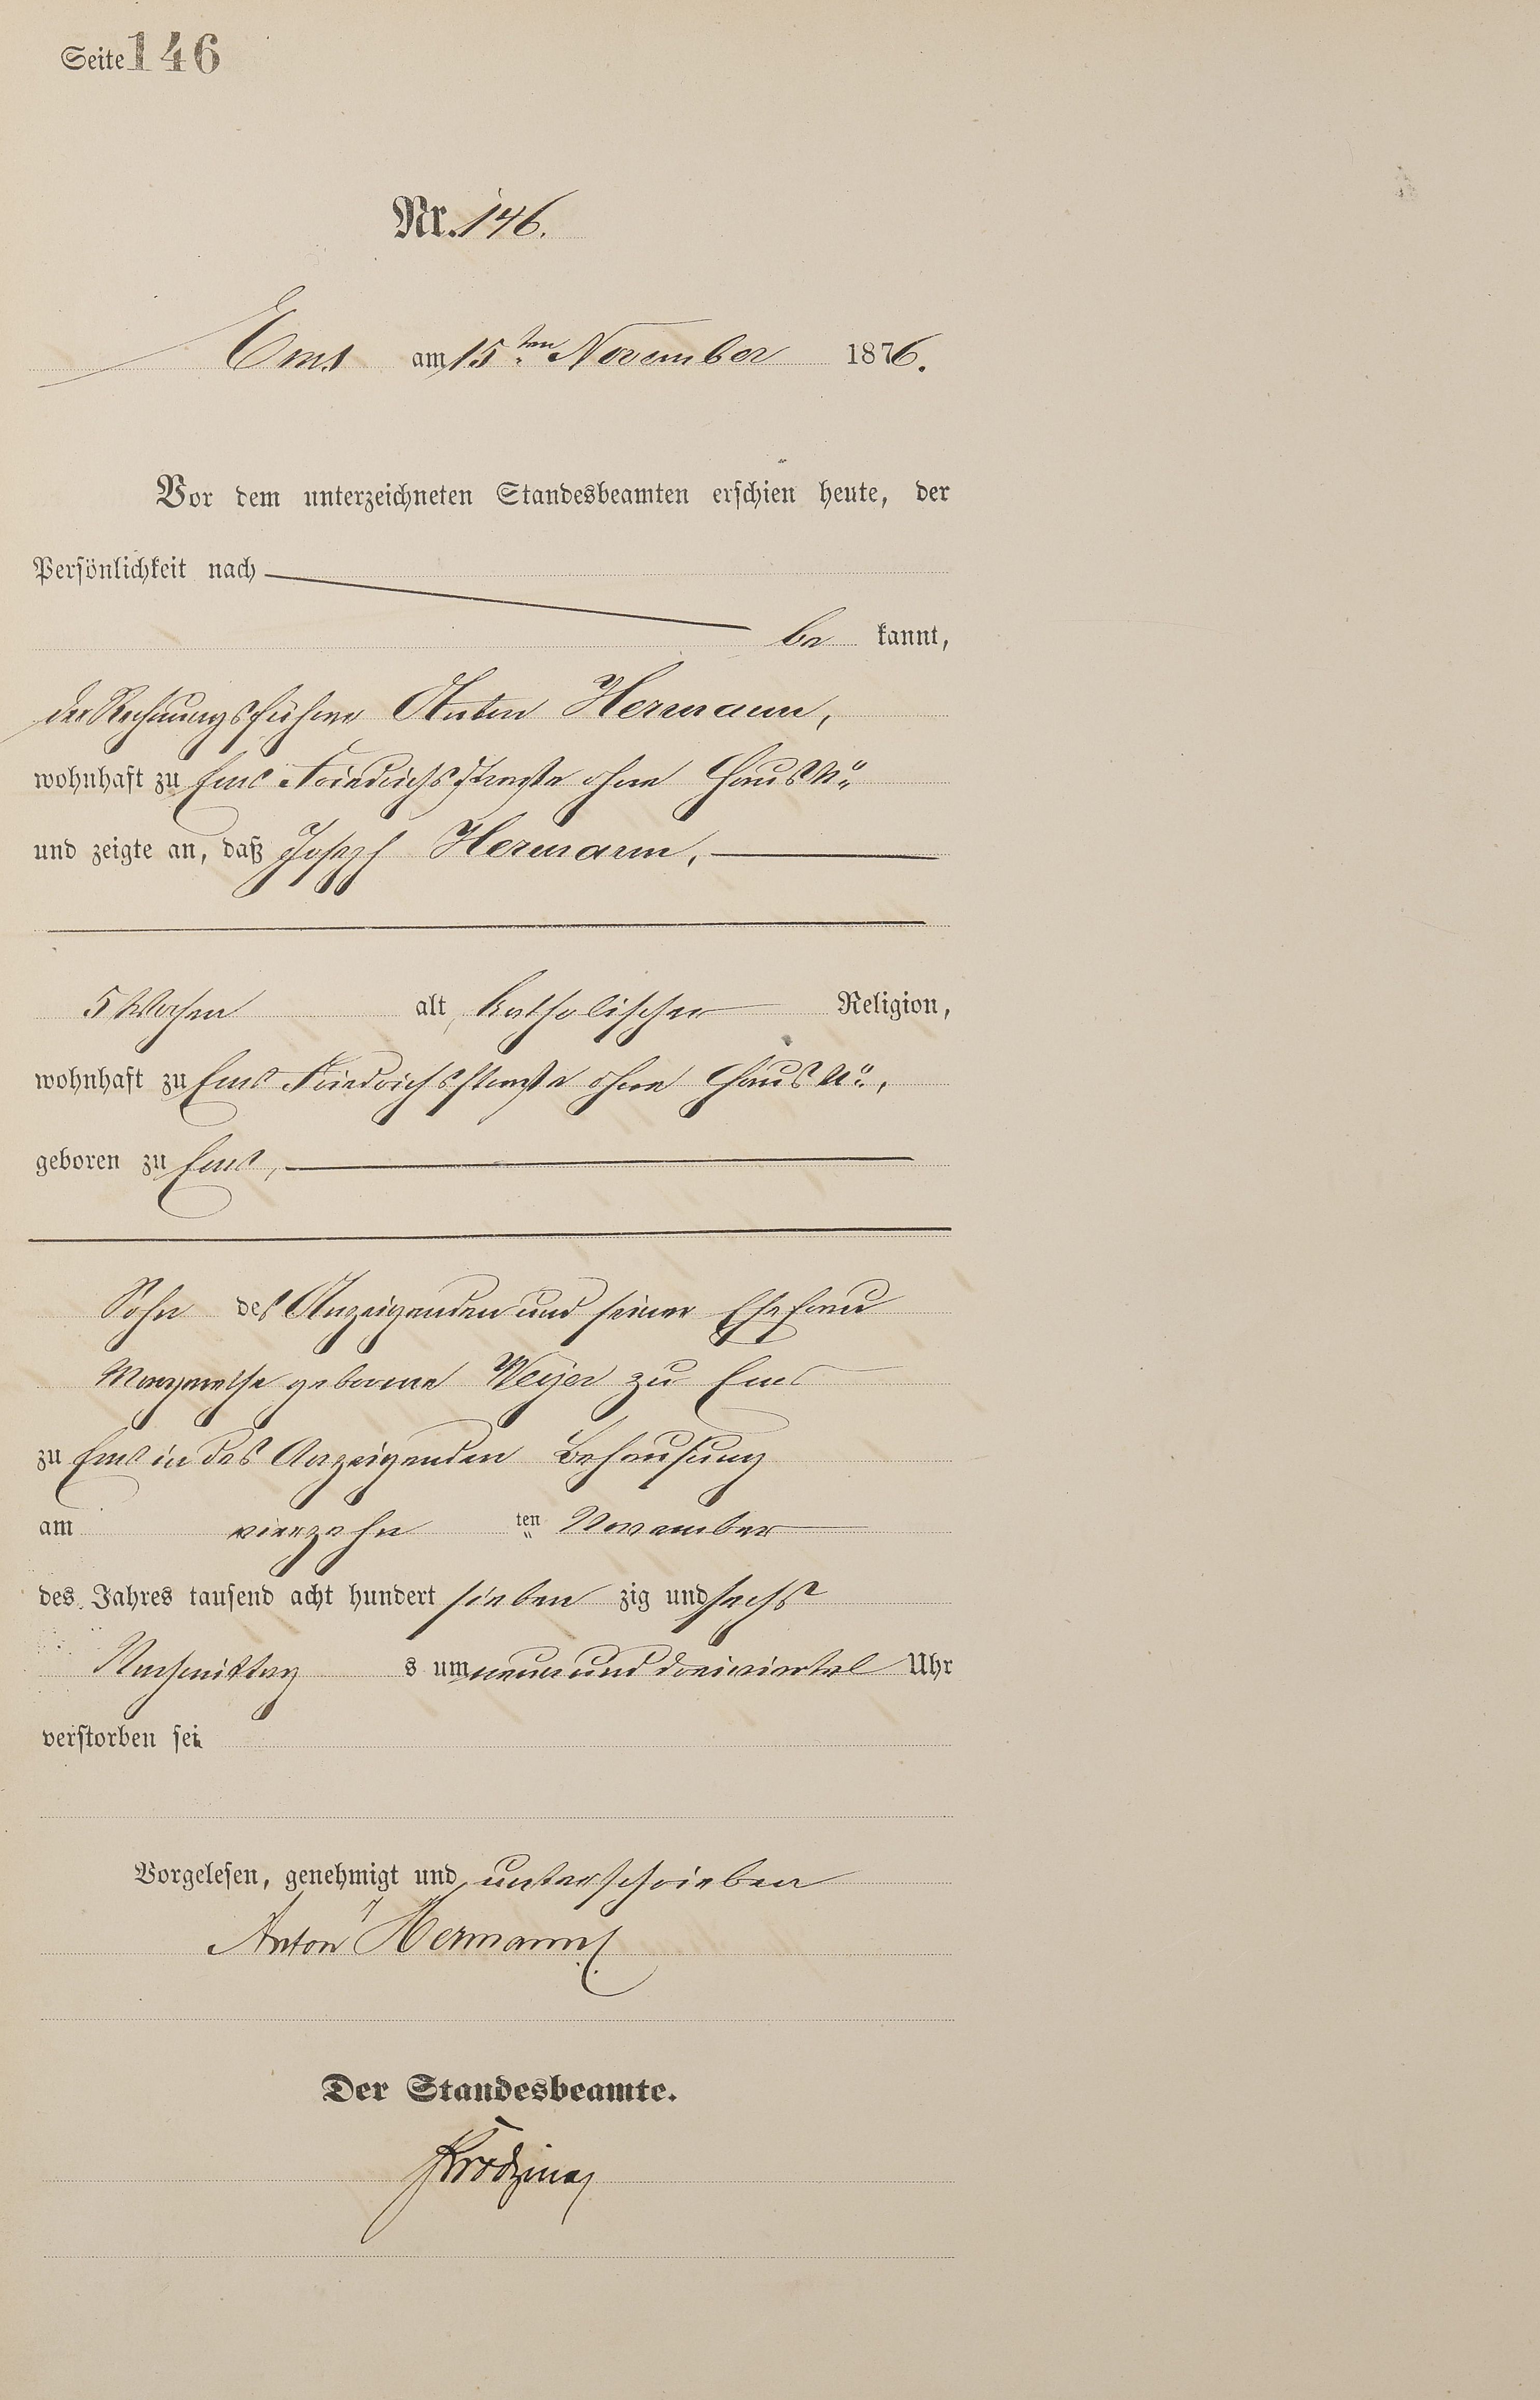 Seite 146
Nr. 146.
Ems am 15ten November 1876.
Vor dem unterzeichneten Standesbeamten erschien heute, der
Persönlichkeit nach
be kannt,
der Rechnungsführer Anton Hermann,
wohnhaft zu Ems Friedrichsstraße ohne Haus No
und zeigte an, daß Joseph Hermann,
5 Wochen alt, katholischer Religion,
wohnhaft zu Ems Friedrichsstraße ohne Haus No,
geboren zu Ems,
Sohn des Anzeigenden und seiner Ehefrau
Margarethe geborene Meyer zu Ems
zu Ems in des Anzeigenden Behausung
am vierzehn ten November
des Jahres tausend acht hundert sieben zig und sechs
Nachmittag s um neun und dreiviertel Uhr
verstorben sei
Vorgelesen, genehmigt und unterschrieben
Anton Hermann
Der Standesbeamte.